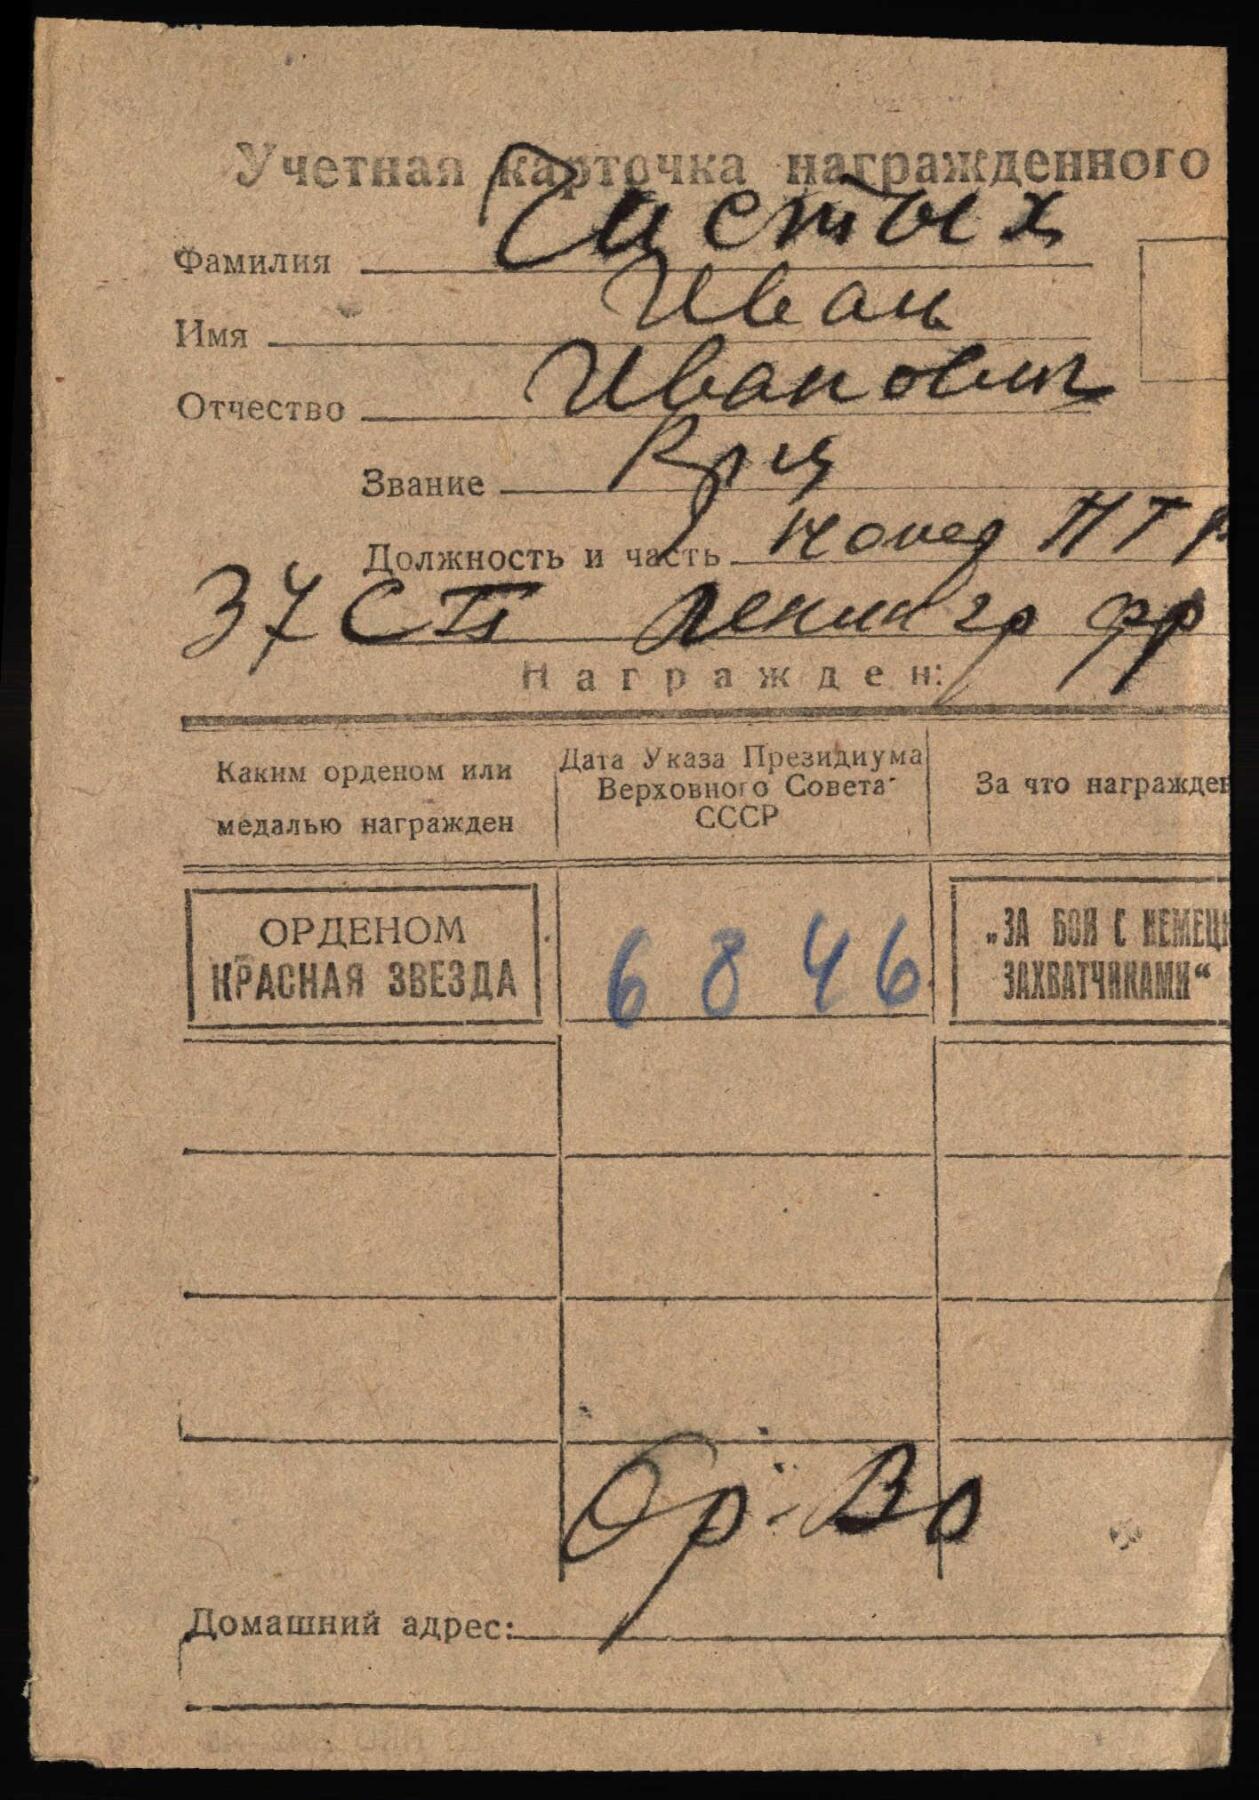 Учетная карточка награжденного
Фамилия Чистых
Имя Иван
Отчество Иванович
Звание Кр-ц
Должность и часть комад ПТР
37 СП Ленингр фр
Награжден:
Каким орденом или
медалью награжден
Дата Указа Президиума
Верховного Совета
СССР
За что награжден
ОРДЕНОМ
КРАСНАЯ ЗВЕЗДА
6 8 46
„ЗА БОИ С НЕМЕЦК
ЗАХВАТЧИКАМИ“
Ор-Во
Домашний адрес: